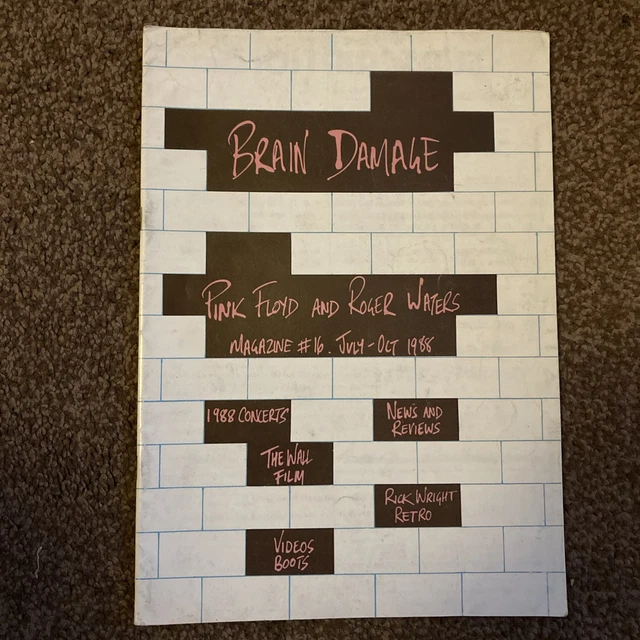 BRAIN DAMAGE
PINK FLOYD AND ROGER WATERS
MAGAZINE #16. JULY-OCT 1988
1988 CONCERTS
NEWS AND
REVIEWS
THE WALL
FILM
RICK WRIGHT
RETRO
VIDEOS
BOOTS